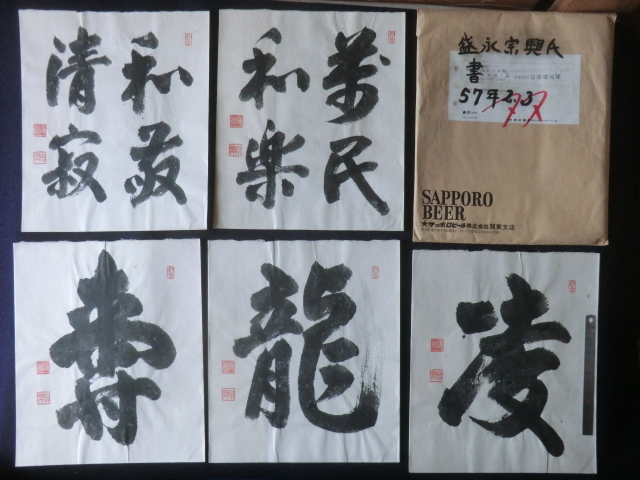 和敬
清寂
萬民
和樂
盛永宗興氏
書
57年2.3
SAPPORO
BEER
★サッポロビール株式会社関東支店
壽
龍
凌